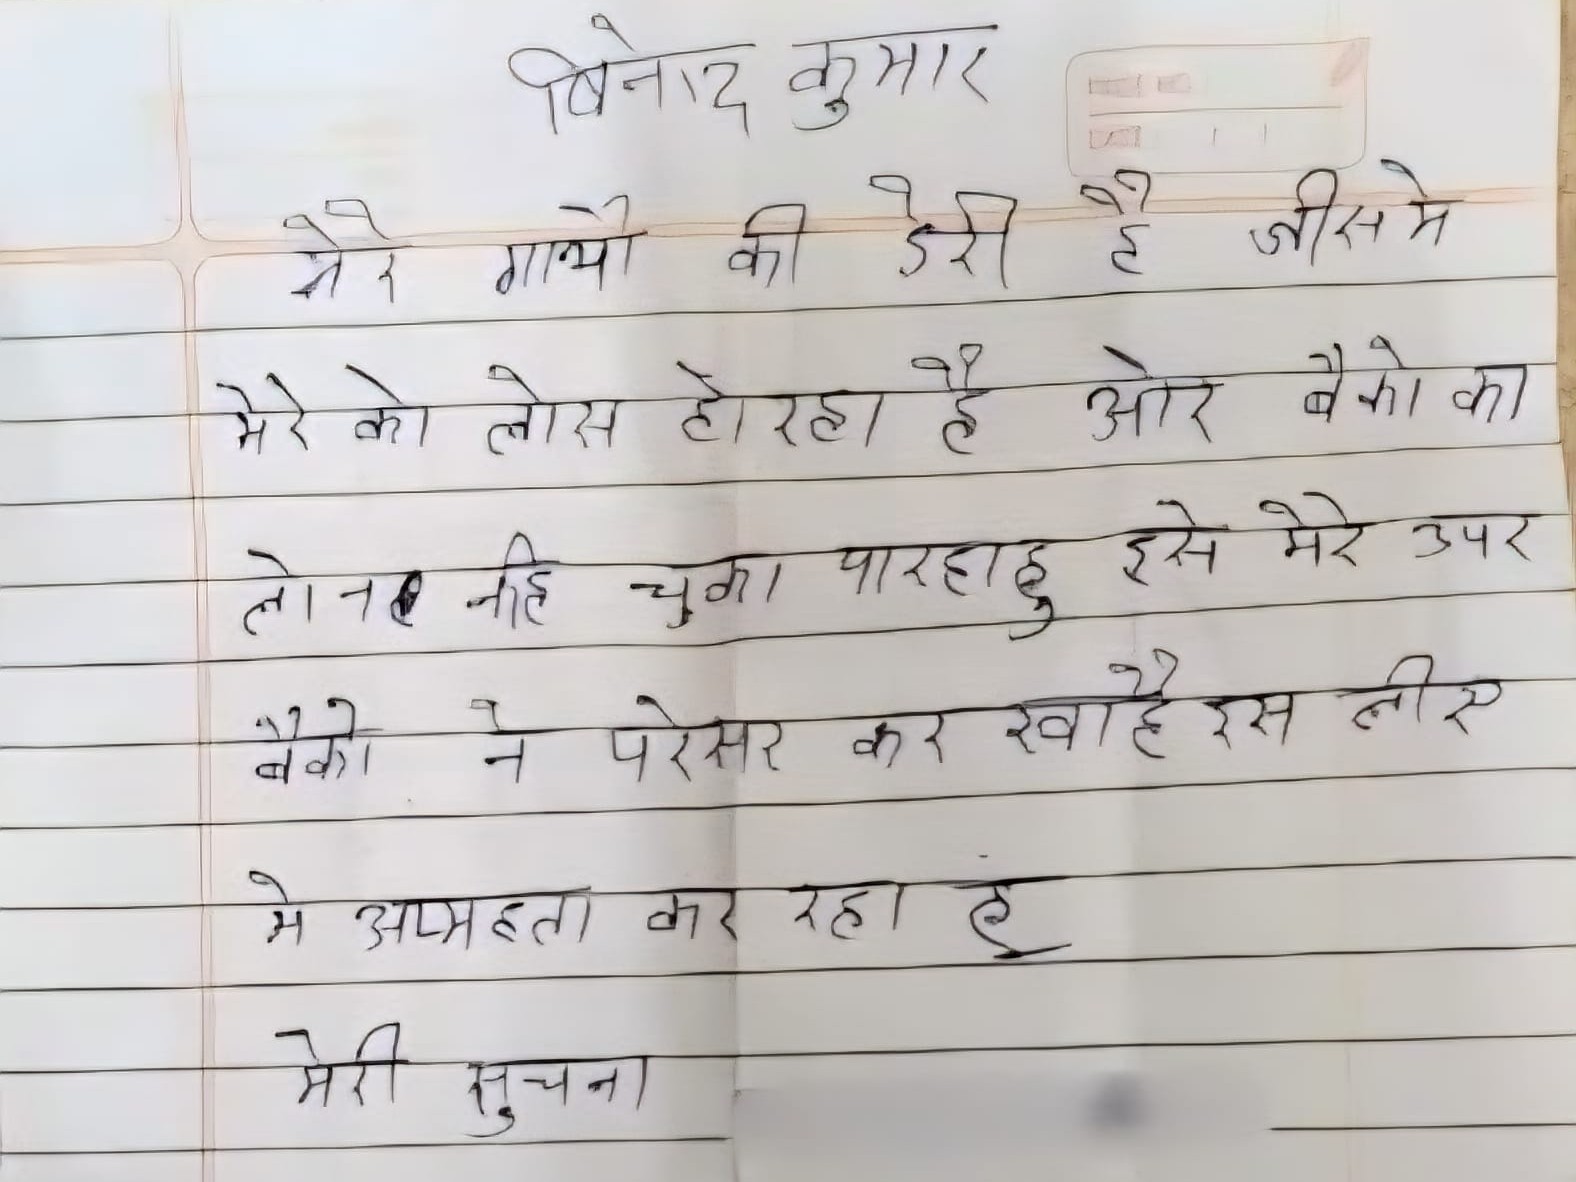 विनोद कुमार
मेरे गायो की डेरी है जीसमे
मेरे को लोस हो रहा है ओर बैको का
लोन नहि चुका पा रहा हु इसे मेरे उपर
बैको ने परेसर कर रखा है इस लीए
मे आत्महता कर रहा हू
मेरी सुचना